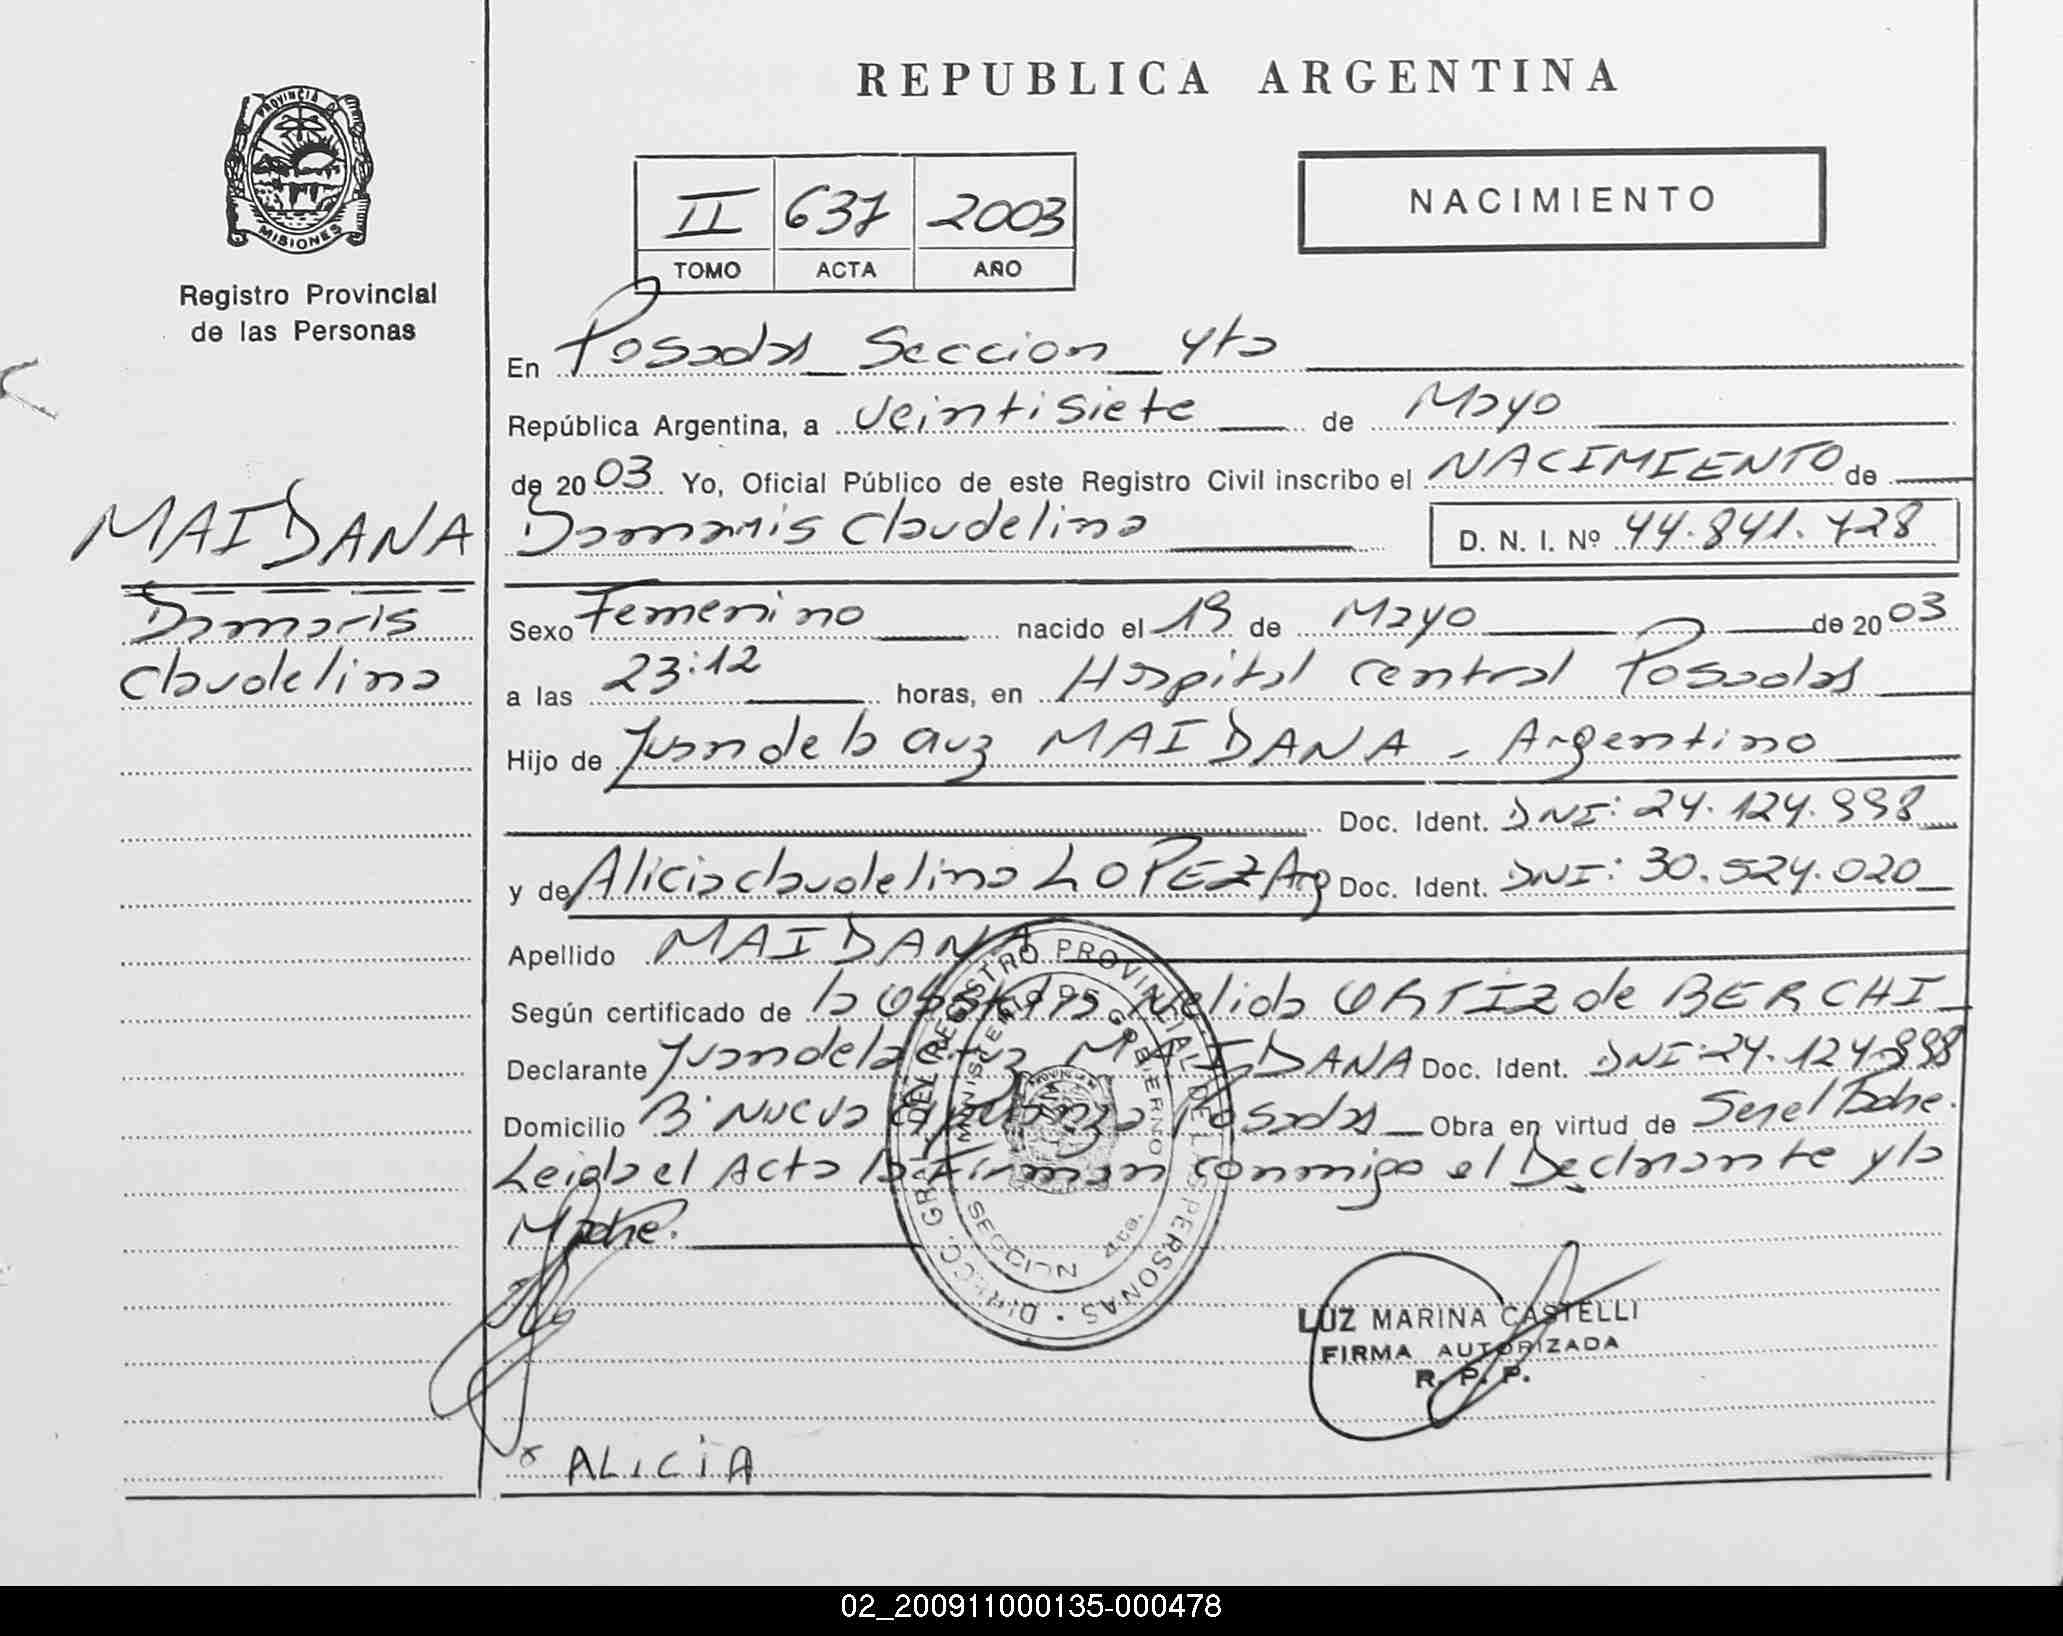 REPUBLICA ARGENTINA
PROVINCIA D
MISIONES
Registro Provincial
de las Personas
II 637 2003
TOMO ACTA AÑO
NACIMIENTO
En Posadas Seccion 4ta
República Argentina, a veintisiete de Mayo
de 2003 Yo, Oficial Público de este Registro Civil inscribo el NACIMIENTO de
MAIDANA
Damaris
Claudelina
Damaris Claudelina D. N. I. Nº 44.841.428
Sexo Femenino nacido el 19 de Mayo de 2003
a las 23:12 horas, en Hospital Central Posadas
Hijo de Juan de la Cruz MAIDANA - Argentino
Doc. Ident. DNI: 24.124.998
y de Alicia Claudelina LOPEZ Arg Doc. Ident. DNI: 30.524.020
Apellido MAIDANA
Según certificado de la Obstetra Nelida ORTIZ de BERCHI
Declarante Juan de la Cruz MAIDANA Doc. Ident. DNI: 24.124.998
Domicilio Bº Nueva Esperanza Posadas Obra en virtud de Ser el Padre.
Leida el Acta la Firman conmigo el Declarante y la
Madre.
DIRECC. GRAL. DEL REGISTRO PROVINCIAL DE LAS PERSONAS
MINISTERIO DE GOBIERNO
LUZ MARINA CASTELLI
FIRMA AUTORIZADA
R. P. P.
ALICIA
02_200911000135-000478